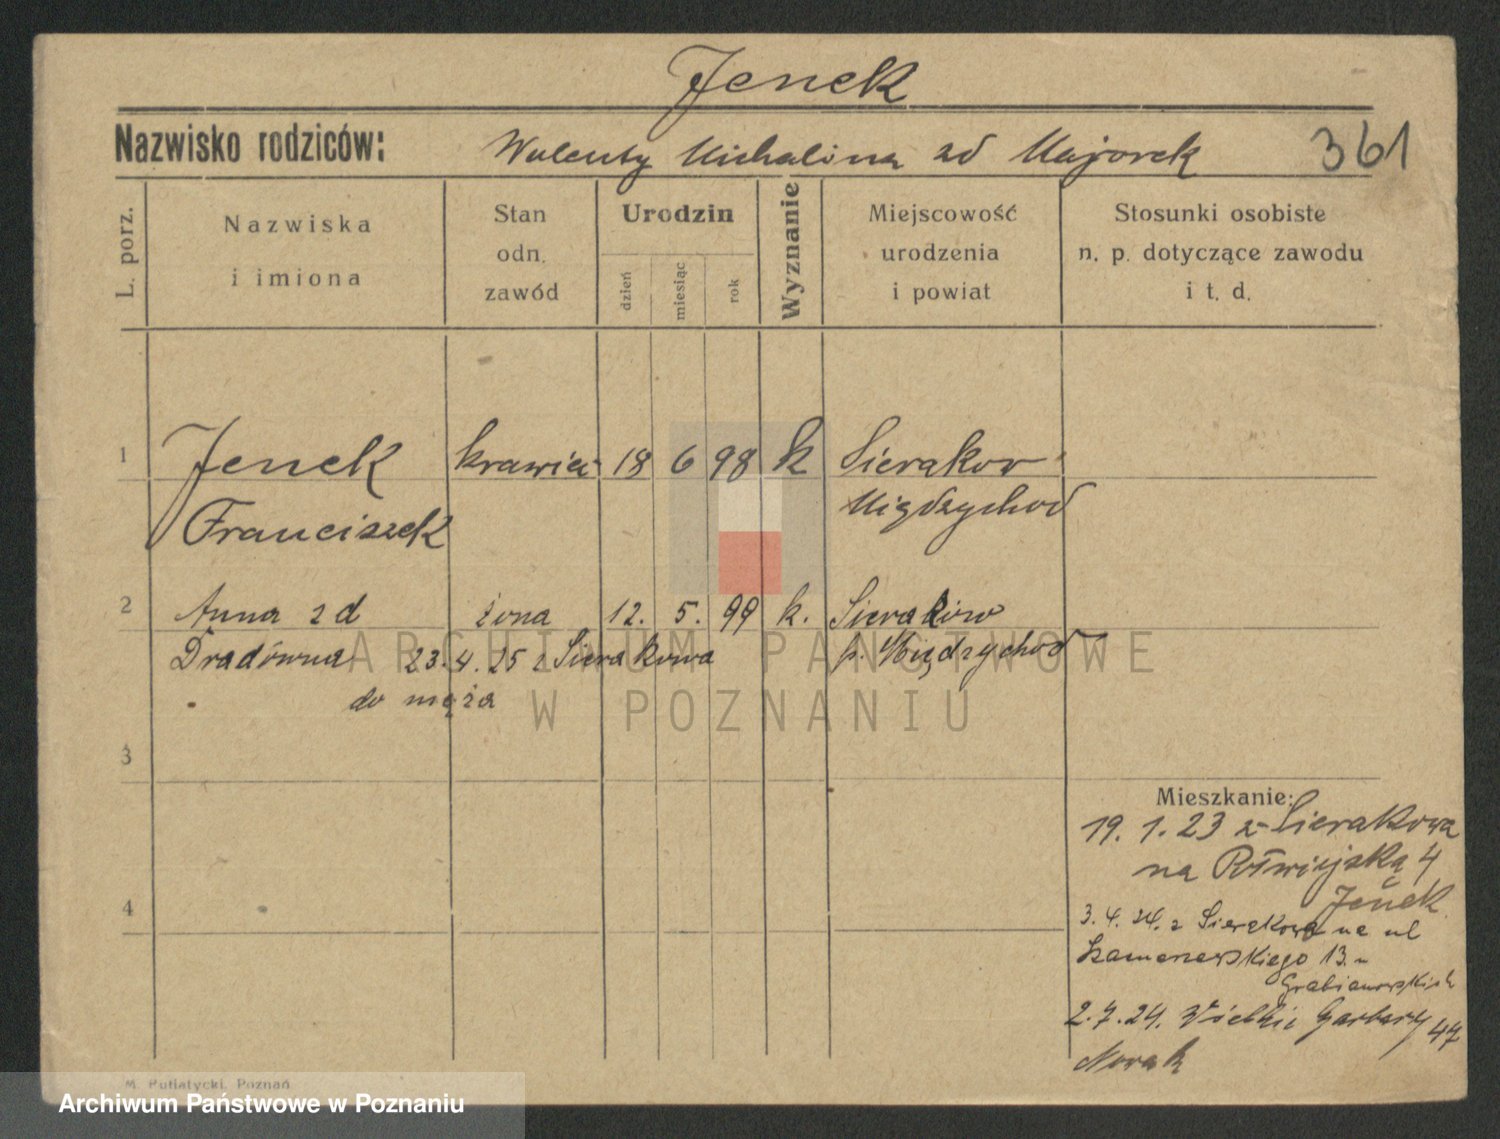 Jenek
Nazwisko rodziców: Walenty Michalina zd Majorek 361
L. porz.
Nazwiska
i imiona
Stan
odn.
zawód
Urodzin
dzień miesiąc rok
Wyznanie
Miejscowość
urodzenia
i powiat
Stosunki osobiste
n. p. dotyczące zawodu
i t. d.
1 Jenek krawiec 18 6 98 k Sierakow
Franciszek Międzychod
2 Anna z d żona 12. 5. 99 k. Sieraków
Dradówna 23.4.25 z Sierakowa p. Międzychod
do męża
3
Mieszkanie:
19. 1. 23 z Sierakowa
na Półwiejską 4
Jenek
4
3.4.24. z Sierakowa na ul
13. u
Grabianowskich
2.7.24. Wielkie Garbary 47
Nowak
M. Putiatycki, Poznań
ARCHIWUM PAŃSTWOWE
W POZNANIU
Archiwum Państwowe w Poznaniu